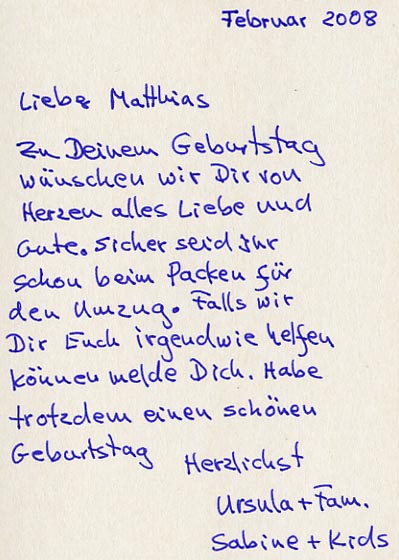 Februar 2008
Liebe Matthias
Zu Deinem Geburtstag
wünschen wir Dir von
Herzen alles Liebe und
Gute. Sicher seid ihr
schon beim Packen für
den Umzug. Falls wir
Dir Euch irgendwie helfen
können melde Dich. Habe
trotzdem einen schönen
Geburtstag
Herzlichst
Ursula + Fam.
Sabine + Kids